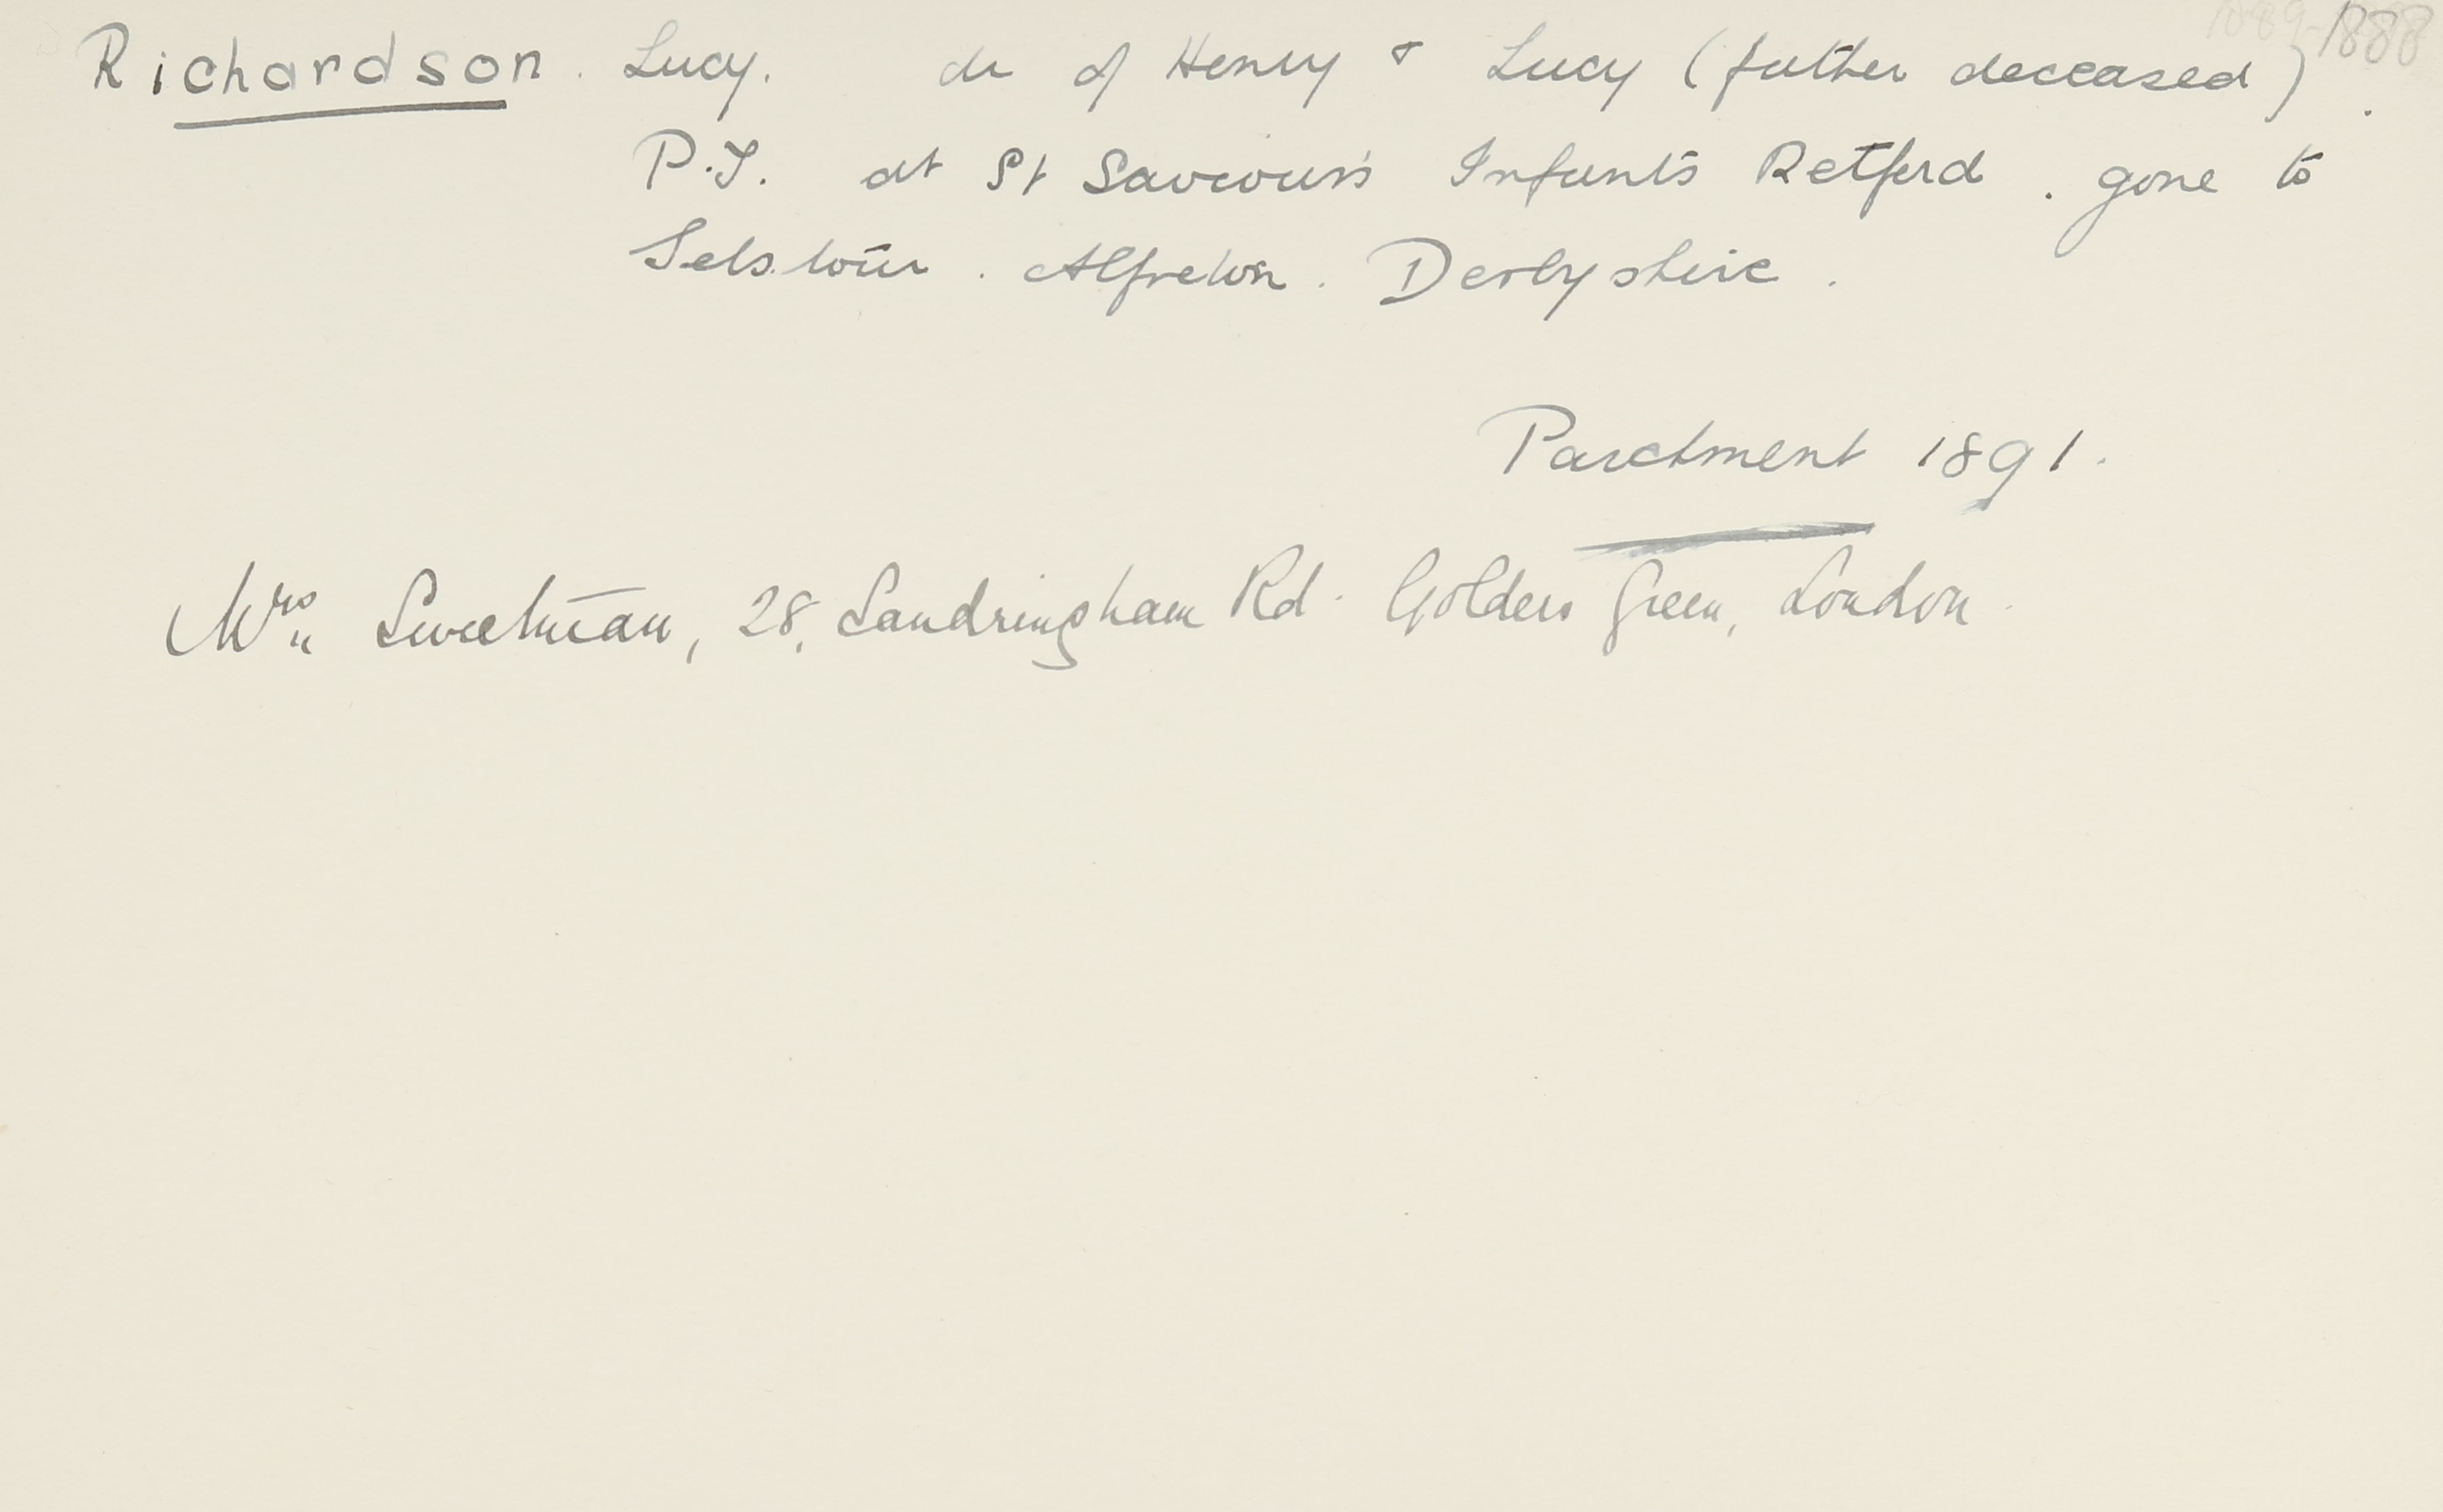 1889-1888
Richardson. Lucy. dr of Henry & Lucy (father deceased).
P.T. at St Saviour's Infants Retford. gone to
Selston. Alfreton. Derbyshire.
Parchment 1891.
Mrs Sweetman, 28, Sandringham Rd. Golders Green, London.